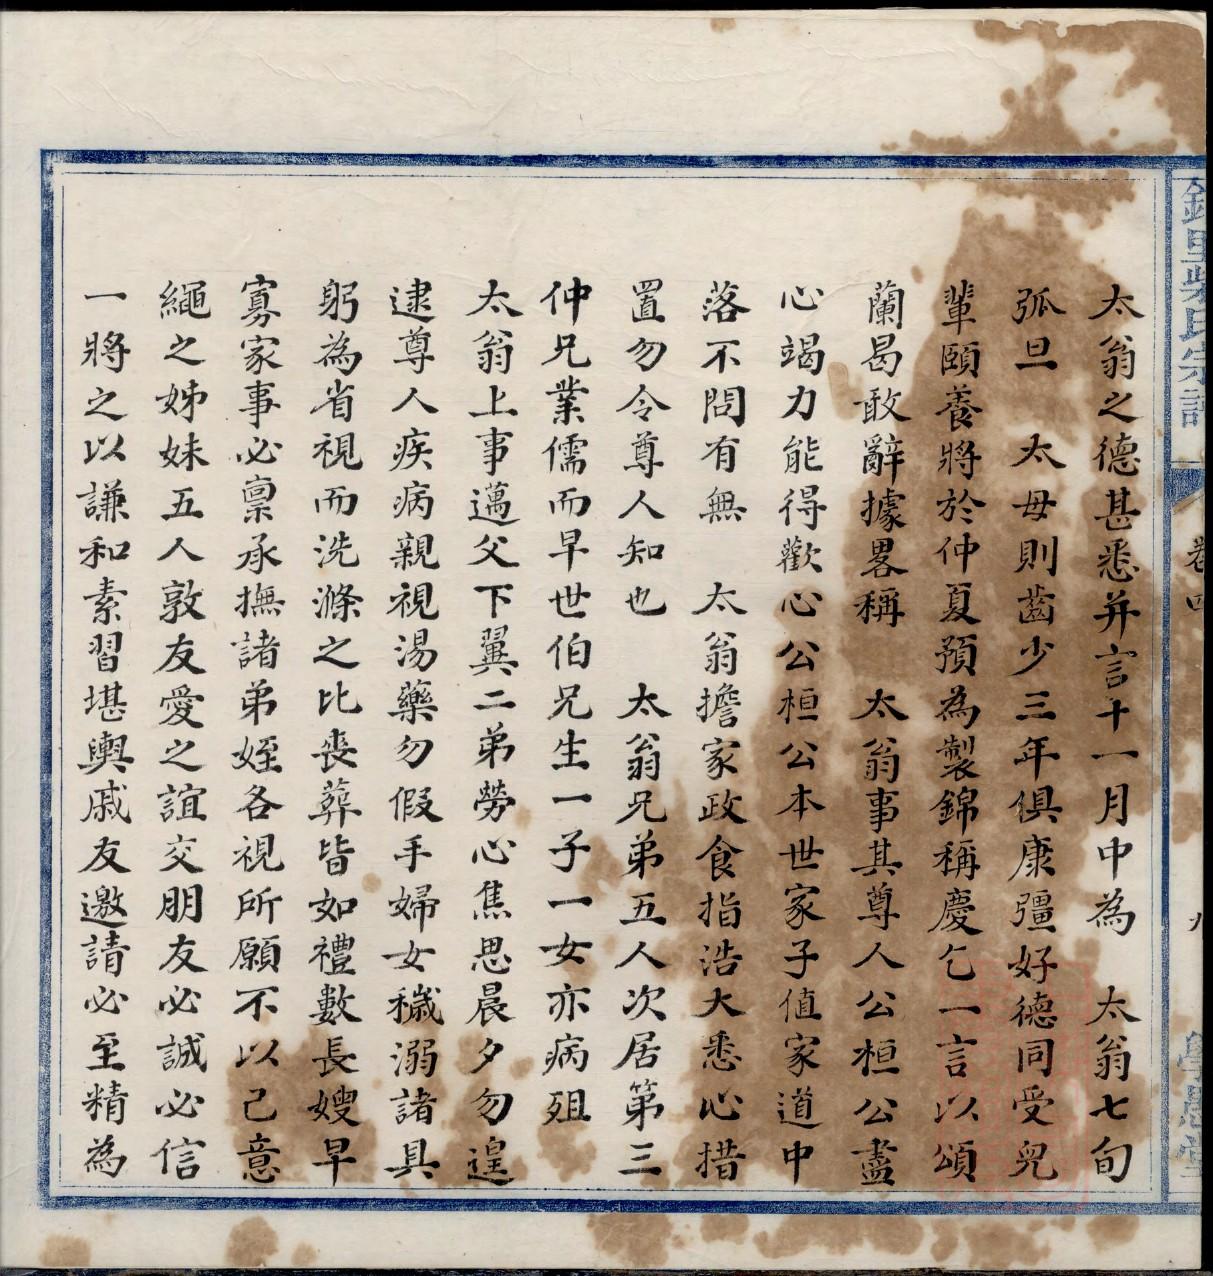 太翁之德甚悉并言十一月中為　太翁七旬
弧旦　太母則齒少三年俱康彊好德同受兒
輩頤養將於仲夏預為製錦稱慶乞一言以頌
蘭曷敢辭據畧稱　太翁事其尊人公桓公盡
心竭力能得歡心公桓公本世家子值家道中
落不問有無　太翁擔家政食指浩大悉心措
置勿令尊人知也　太翁兄弟五人次居第三
仲兄業儒而早世伯兄生一子一女亦病殂
太翁上事邁父下翼二弟勞心焦思晨夕勿遑
逮尊人疾病親視湯藥勿假手婦女穢溺諸具
躬為省視而洗滌之比喪葬皆如禮數長嫂早
寡家事必稟承撫諸弟姪各視所願不以己意
繩之姊妹五人敦友愛之誼交朋友必誠必信
一將之以謙和素習堪輿戚友邀請必至精為
氏宗譜
卷四
九